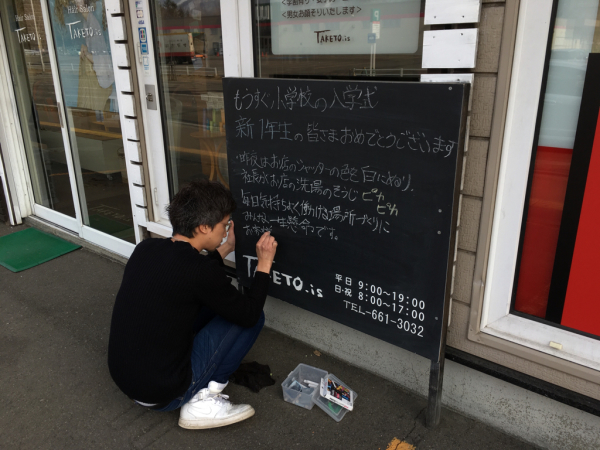 Hair Salon
TAKETO.is
Hair Salon
TAKETO.is
＜男女お顔そりいたします＞
TAKETO.is
もうすぐ小学校の入学式
新1年生の皆さまおめでとうございます
・昨夜はお店のシャッターの色を白にぬり、
社長がお店の洗場のそうじピカピカ
毎日気持ちよく働ける場所づくりに
みんな一生懸命です。
TAKETO.is
平日 9:00〜19:00
日・祝 8:00〜17:00
TEL-661-3032